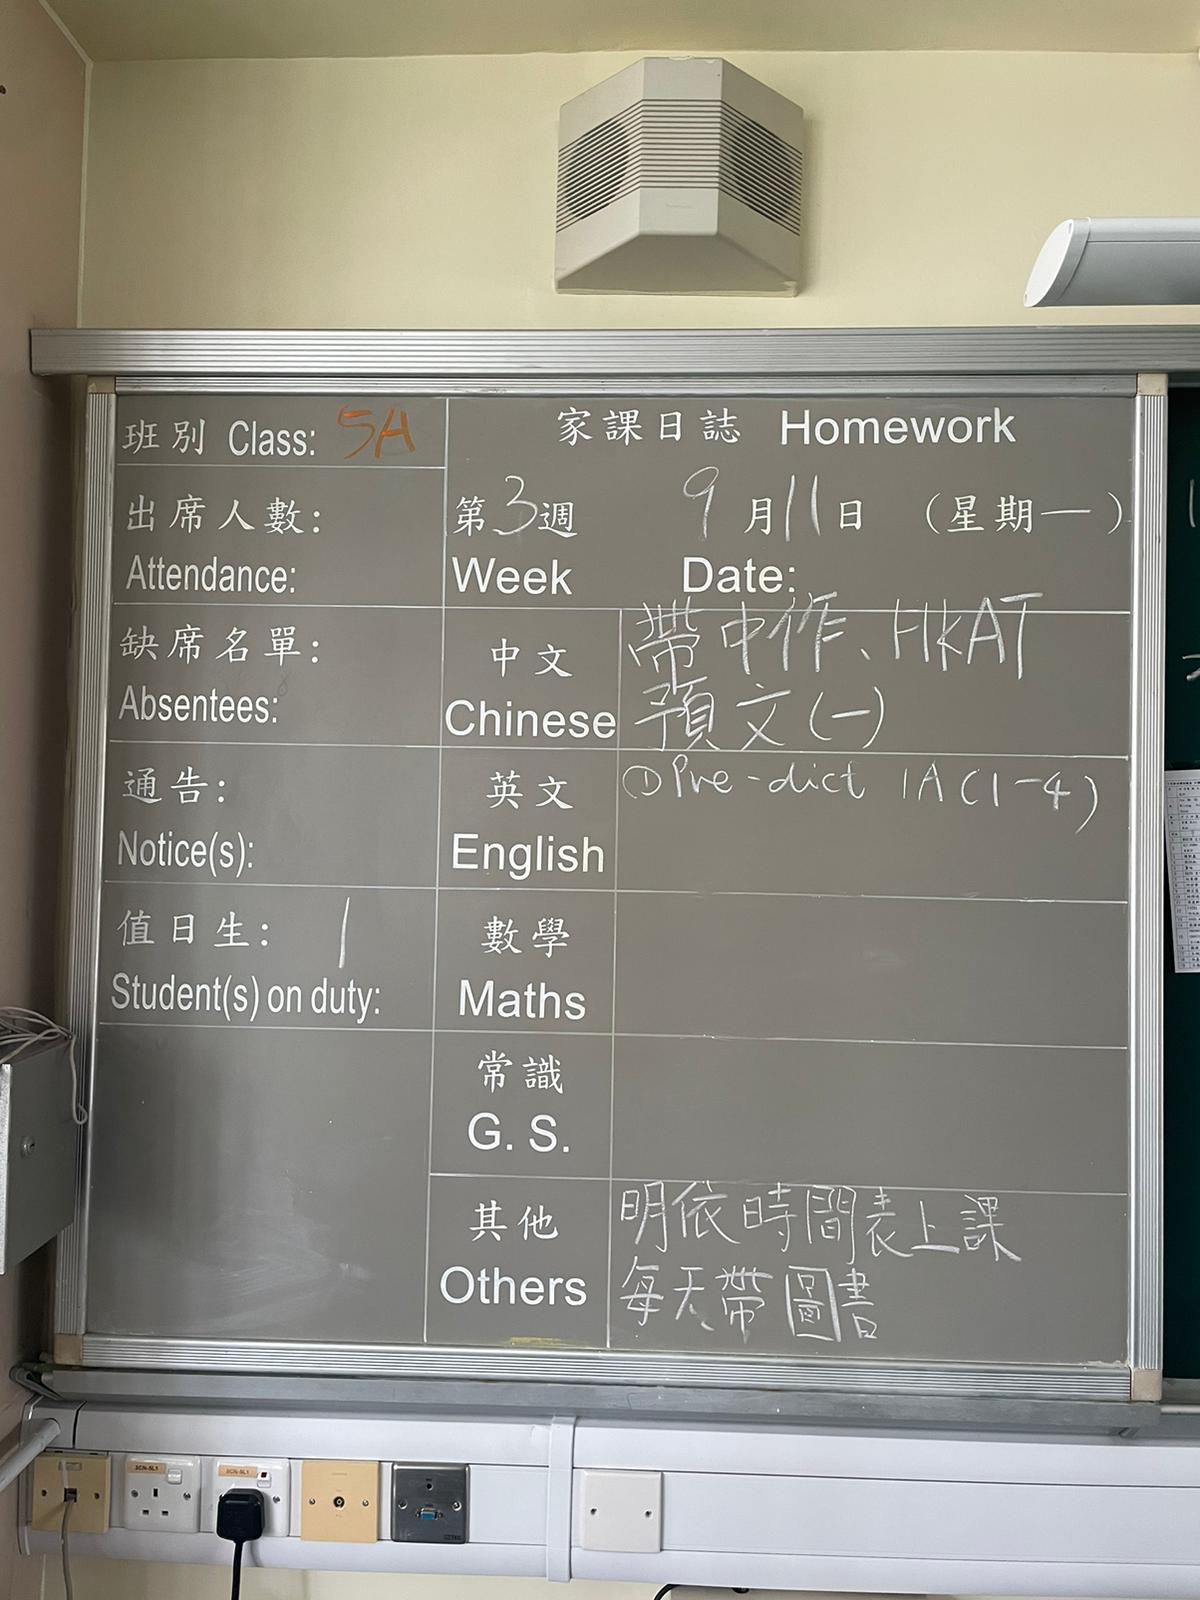 班別 Class: 5A
家課日誌 Homework
出席人數:
Attendance:
第3週 9月11日 (星期一)
Week Date:
缺席名單:
Absentees:
中文
Chinese
帶中作、HKAT
預文(一)
通告:
Notice(s):
英文
English
①Pre-dict 1A(1-4)
值日生: 1
Student(s) on duty:
數學
Maths
常識
G. S.
其他
Others
明依時間表上課
每天帶圖書